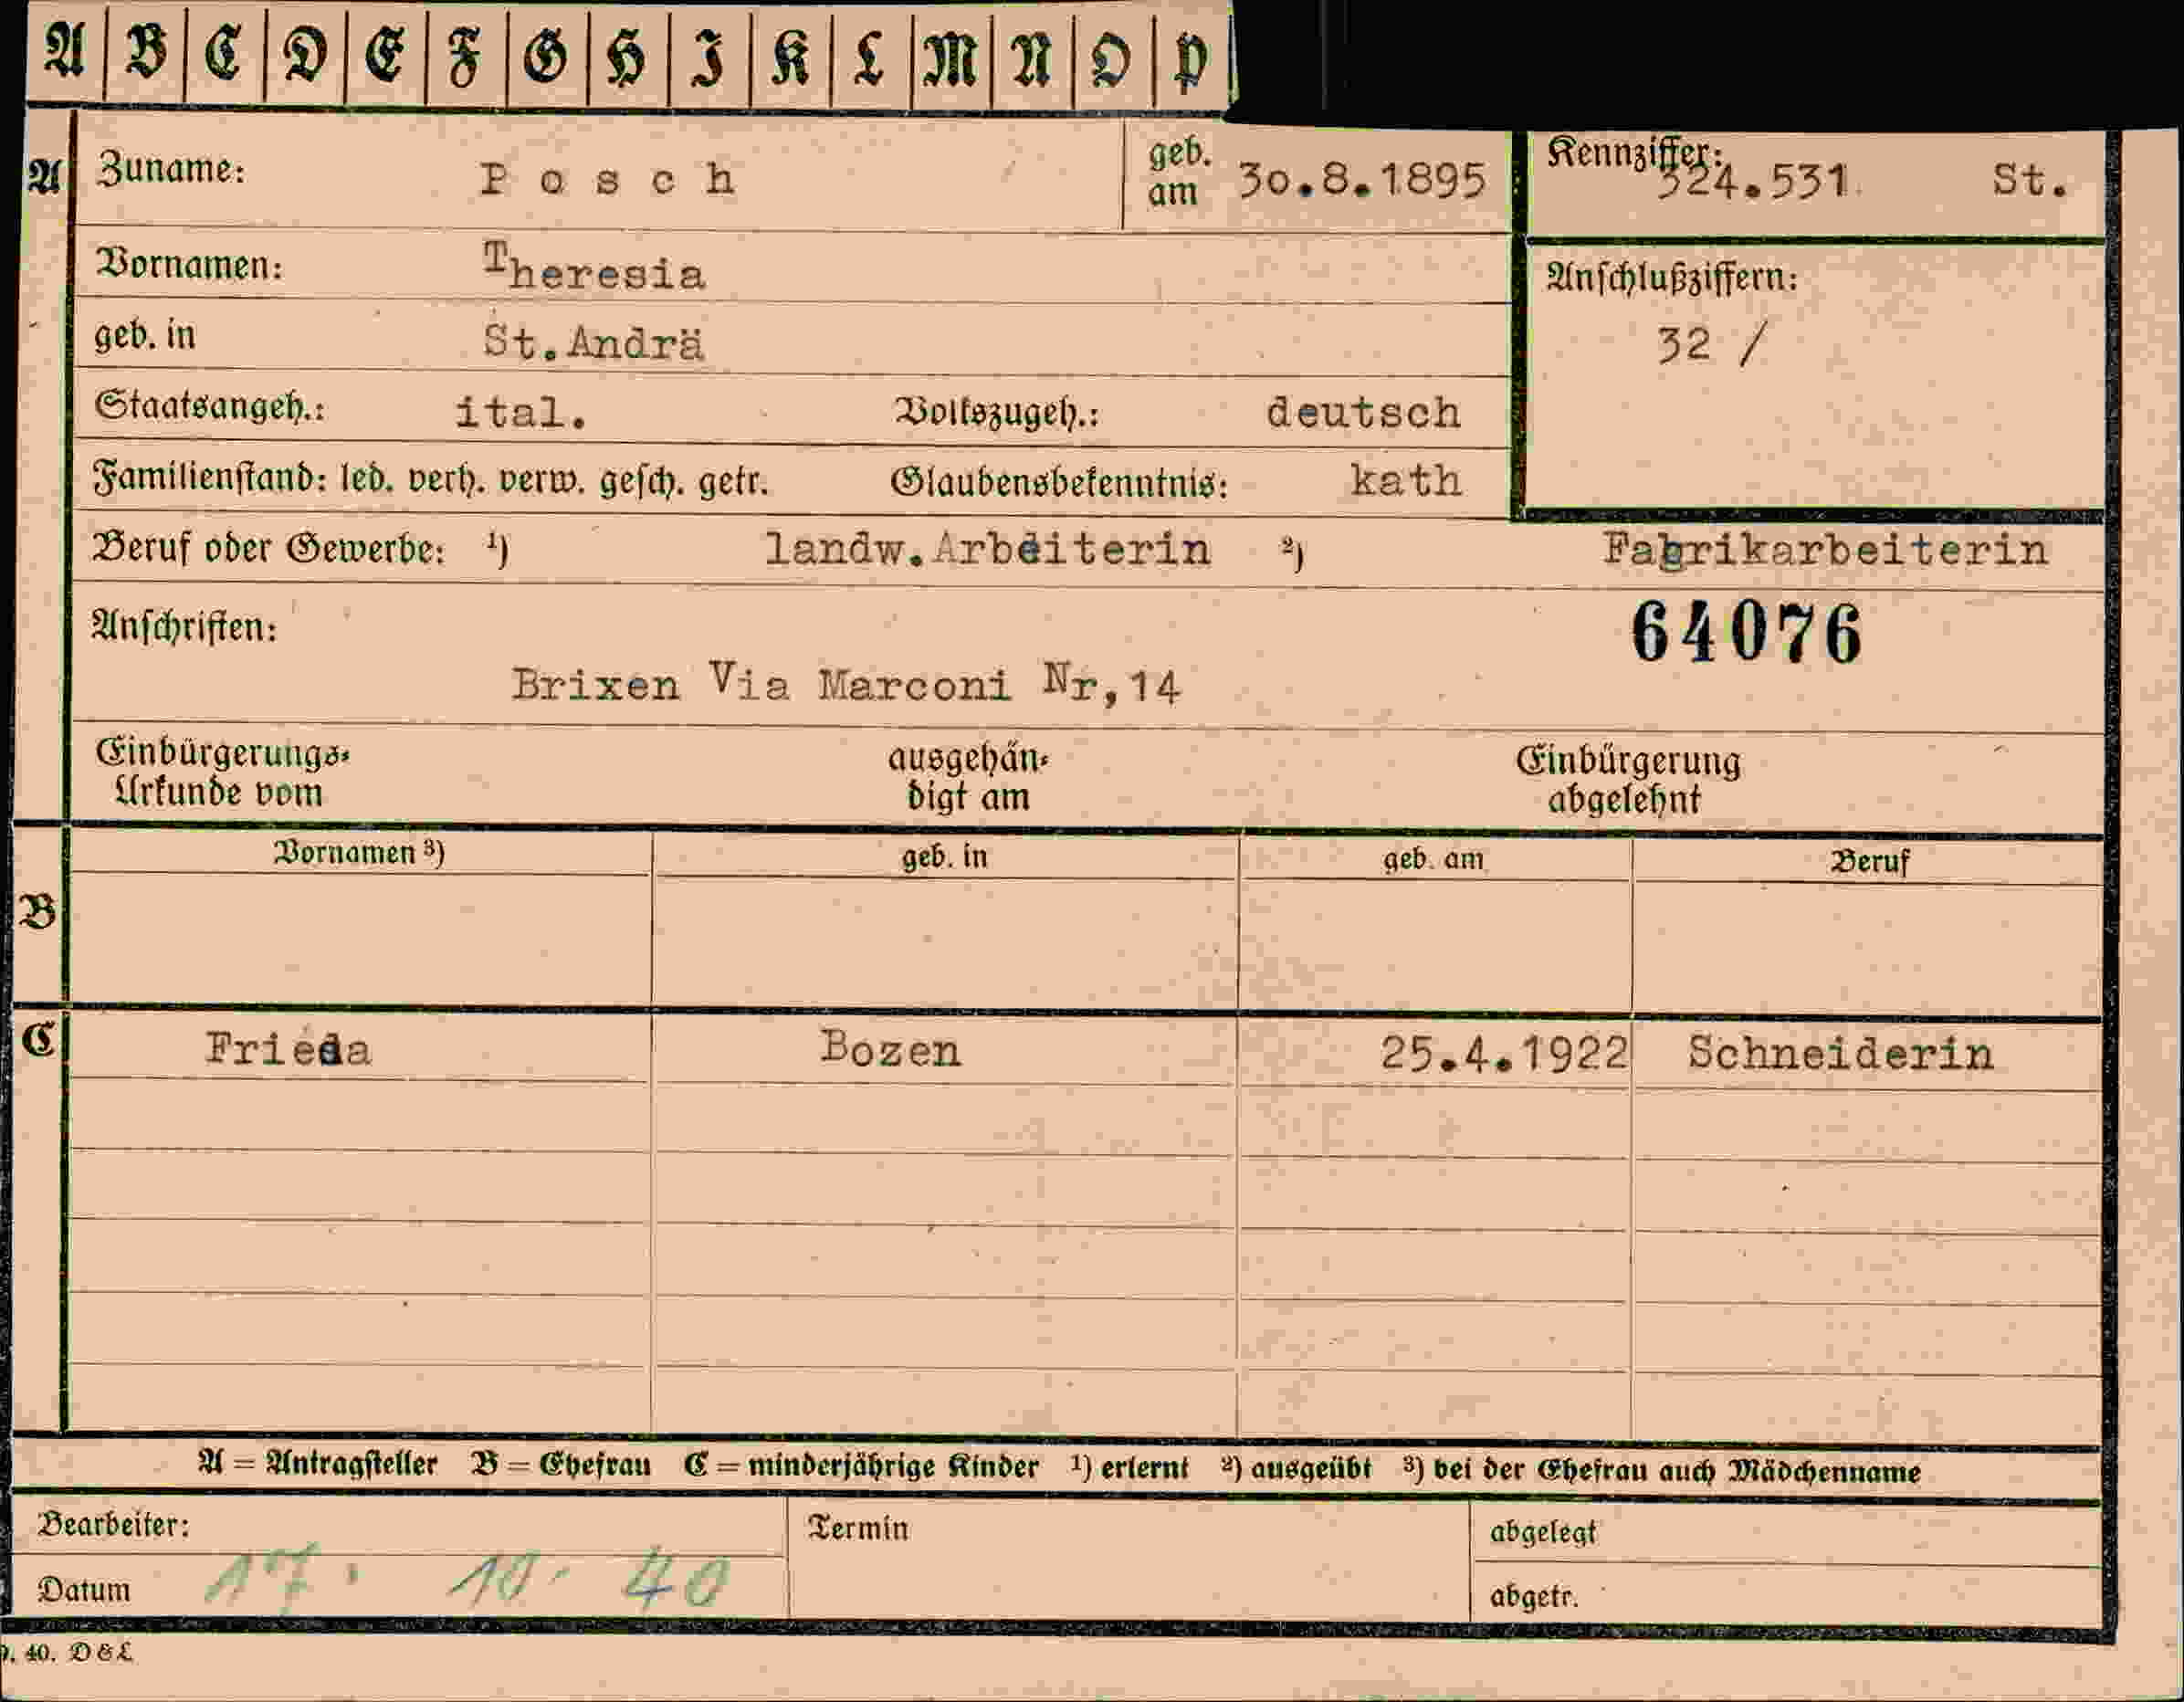 A B C D E F G H I K L M N O P
A Zuname: Posch geb. am 30.8.1895 Kennziffer: 324.531. St.
Vornamen: Theresia
Anschlußziffern:
geb. in St.Andrä 32 /
Staatsangeh.: ital. Volkszugeh.: deutsch
Familienstand: led. verh. verw. gesch. getr. Glaubensbekenntnis: kath
Beruf oder Gewerbe: 1) landw.Arbeiterin 2) Fabrikarbeiterin
Anschriften: 64076
Brixen Via Marconi Nr,14
Einbürgerungs-Urkunde vom ausgehändigt am Einbürgerung abgelehnt
Vornamen 3) geb. in geb. am Beruf
B
C Frieda Bozen 25.4.1922 Schneiderin
A = Antragsteller B = Ehefrau C = minderjährige Kinder 1) erlernt 2) ausgeübt 3) bei der Ehefrau auch Mädchenname
Bearbeiter: Termin abgelegt
Datum 17. 10. 40 abgetr.
40. D&L